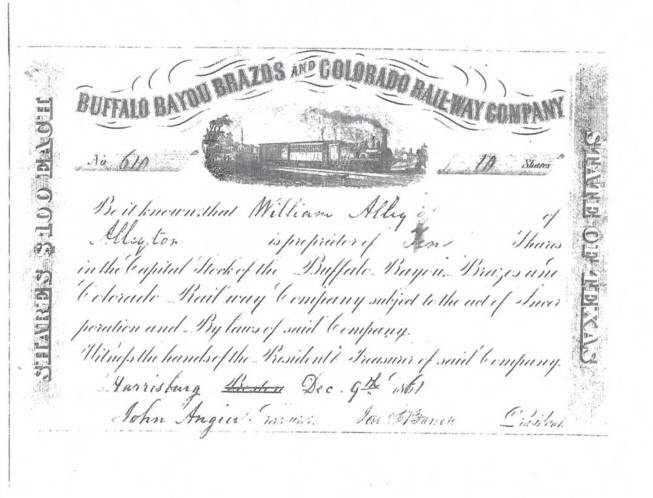 BUFFALO BAYOU BRAZOS AND COLORADO RAIL-WAY COMPANY
SHARES $100 EACH
STATE OF TEXAS
No. 610
10 Shares
Be it known, that William Alley of
Alleyton is proprietor of Ten Shares
in the Capital Stock of the Buffalo Bayou Brazos and
Colorado Rail way Company subject to the act of Incor
poration and By laws of said Company.
Witness the hands of the President & Treasurer of said Company.
Harrisburg Boston Dec. 9th 1861
John Angier Treasurer President